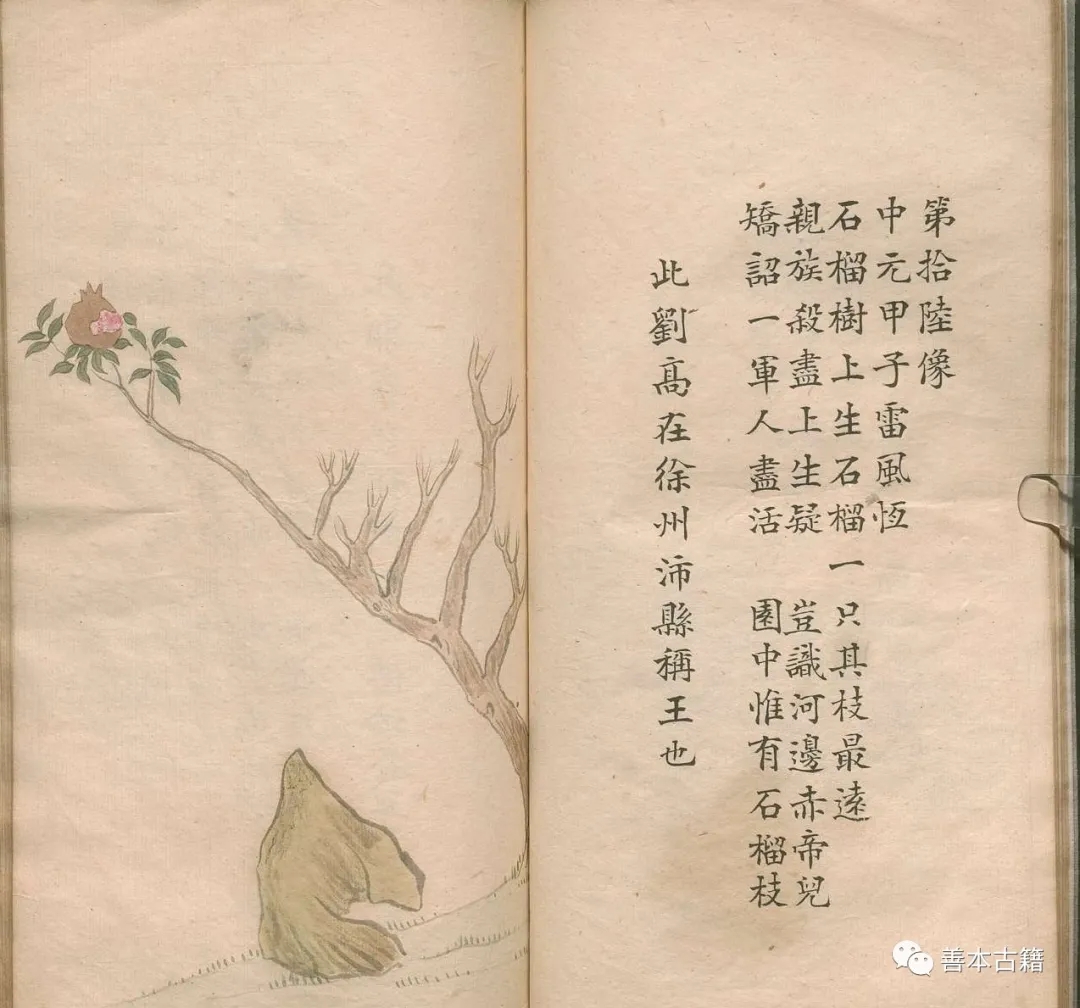 第拾陸像
中元甲子雷風恆
石榴樹上生石榴一只其枝最遠
親族殺盡上生疑 豈識河邊赤帝兒
矯詔一軍人盡活 園中惟有石榴枝
此劉高在徐州沛縣稱王也
善本古籍